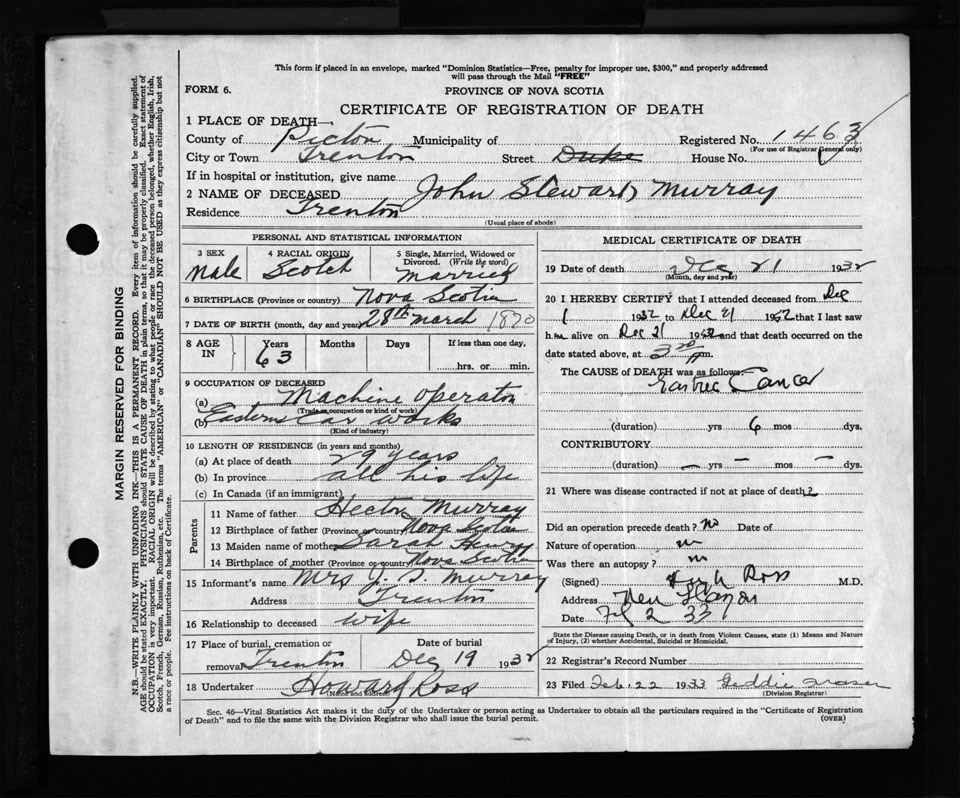 This form if placed in an envelope, marked "Dominion Statistics—Free, penalty for improper use, $300," and properly addressed
will pass through the Mail "FREE"
FORM 6.
PROVINCE OF NOVA SCOTIA
CERTIFICATE OF REGISTRATION OF DEATH
1 PLACE OF DEATH—
County of Pictou Municipality of Registered No. 1463
(For use of Registrar General only)
City or Town Trenton Street Duke House No.
If in hospital or institution, give name
2 NAME OF DECEASED John Stewart Murray
Residence Trenton
(Usual place of abode)
PERSONAL AND STATISTICAL INFORMATION
3 SEX 4 RACIAL ORIGIN 5 Single, Married, Widowed or
Divorced. (Write the word)
Male Scotch Married
6 BIRTHPLACE (Province or country) Nova Scotia
7 DATE OF BIRTH (month, day and year) 28th March 1870
8 AGE IN Years Months Days If less than one day,
63 hrs. or min.
9 OCCUPATION OF DECEASED
(a) Machine Operator
(Trade, occupation or kind of work)
(b) Eastern Car Works
(Kind of industry)
10 LENGTH OF RESIDENCE (in years and months)
(a) At place of death 29 years
(b) In province all his life
(c) In Canada (if an immigrant)
Parents
11 Name of father Hector Murray
12 Birthplace of father (Province or country) Nova Scotia
13 Maiden name of mother Sarah Henry
14 Birthplace of mother (Province or country) Nova Scotia
15 Informant's name Mrs J. S. Murray
Address Trenton
16 Relationship to deceased wife
17 Place of burial, cremation or Date of burial
removal Trenton Dec 19 1932
18 Undertaker Howard Ross
(Name and address)
MEDICAL CERTIFICATE OF DEATH
19 Date of death Dec 21 1932
(Month, day and year)
20 I HEREBY CERTIFY that I attended deceased from Dec
1 1932 to Dec 21 1932 that I last saw
him alive on Dec 21 1932 and that death occurred on the
date stated above, at 3 m.
The CAUSE of DEATH was as follows:
Gastric Cancer
(duration) yrs 6 mos dys.
CONTRIBUTORY
(duration) — yrs — mos — dys.
21 Where was disease contracted if not at place of death?
Did an operation precede death? no Date of
Nature of operation
Was there an autopsy?
(Signed) Hugh Ross M.D.
Address New Glasgow
Date Feb 2 33
State the Disease causing Death, or in death from Violent Causes, state (1) Means and Nature
of Injury, (2) whether Accidental, Suicidal or Homicidal.
22 Registrar's Record Number
23 Filed Feb. 22 1933 Geddie Fraser
(Division Registrar)
Sec. 46—Vital Statistics Act makes it the duty of the Undertaker or person acting as Undertaker to obtain all the particulars required in the "Certificate of Registration
of Death" and to file the same with the Division Registrar who shall issue the burial permit.
(OVER)
MARGIN RESERVED FOR BINDING
N.B.—WRITE PLAINLY WITH UNFADING INK—THIS IS A PERMANENT RECORD. Every item of information should be carefully supplied.
AGE should be stated EXACTLY. PHYSICIANS should STATE CAUSE OF DEATH in plain terms, so that it may be properly classified. Exact statement of
OCCUPATION is very important. RACIAL ORIGIN will be described by stating to what people or race the deceased person belonged, whether English, Irish,
Scotch, French, German, Russian, Ruthenian, etc. The terms "AMERICAN" or "CANADIAN" SHOULD NOT BE USED as they express citizenship but not
a race or people. See instructions on back of Certificate.